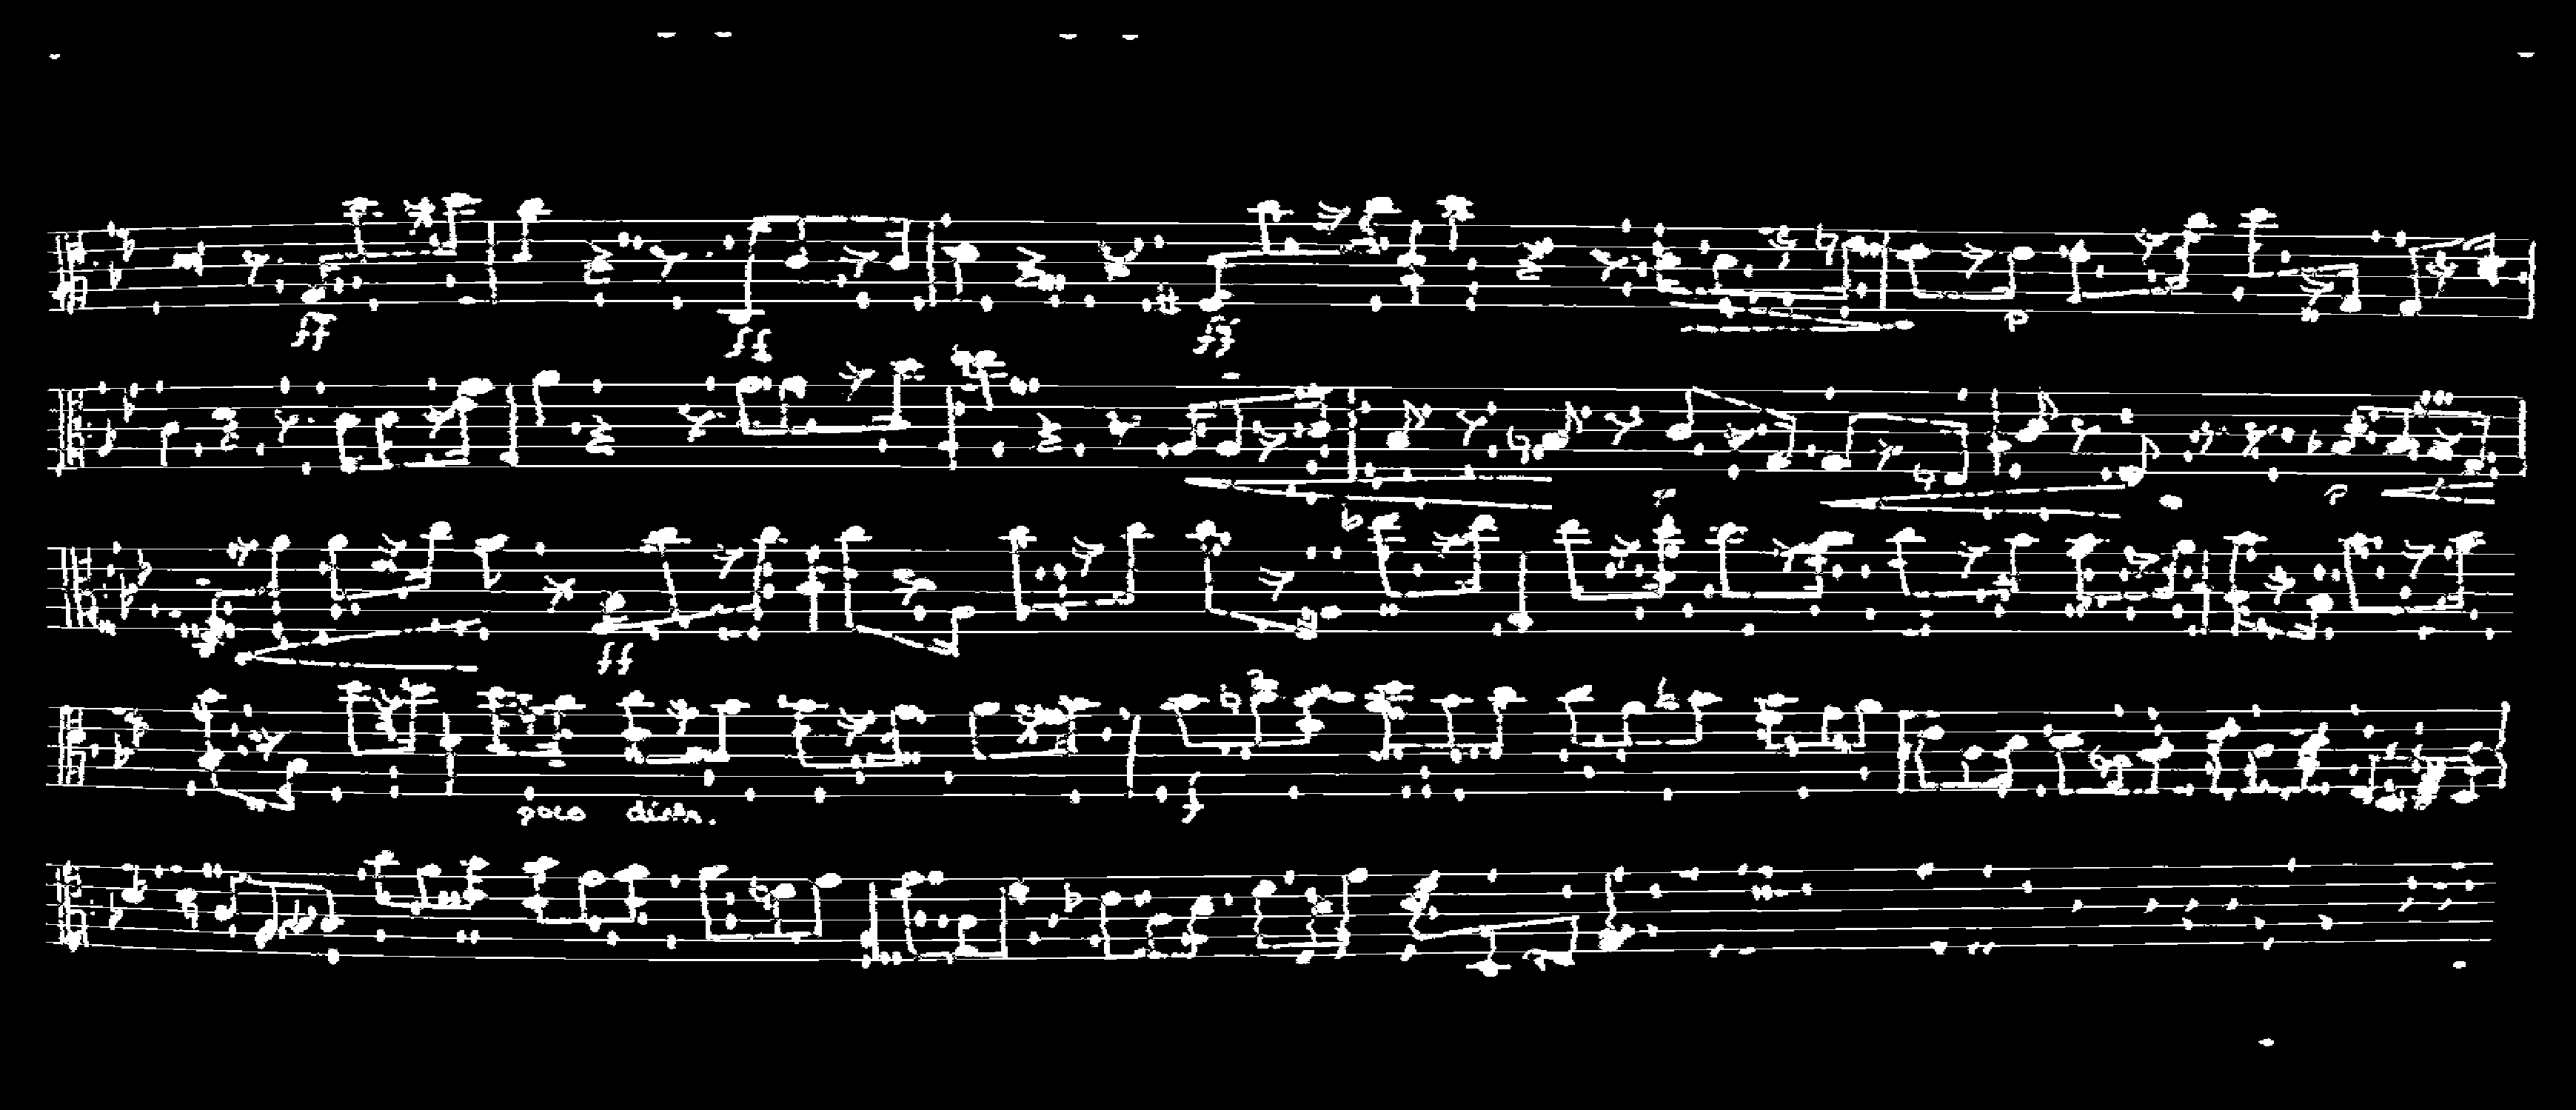 ff ff ff p
p
ff
poco dim. f